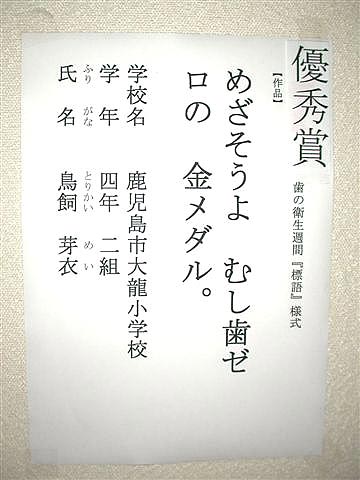 優秀賞
歯の衛生週間『標語』様式
【作品】
めざそうよ　むし歯ゼ
ロの　金メダル。
学校名　鹿児島市大龍小学校
学年　四年　二組
ふり　がな　とりかい　めい
氏名　鳥飼　芽衣